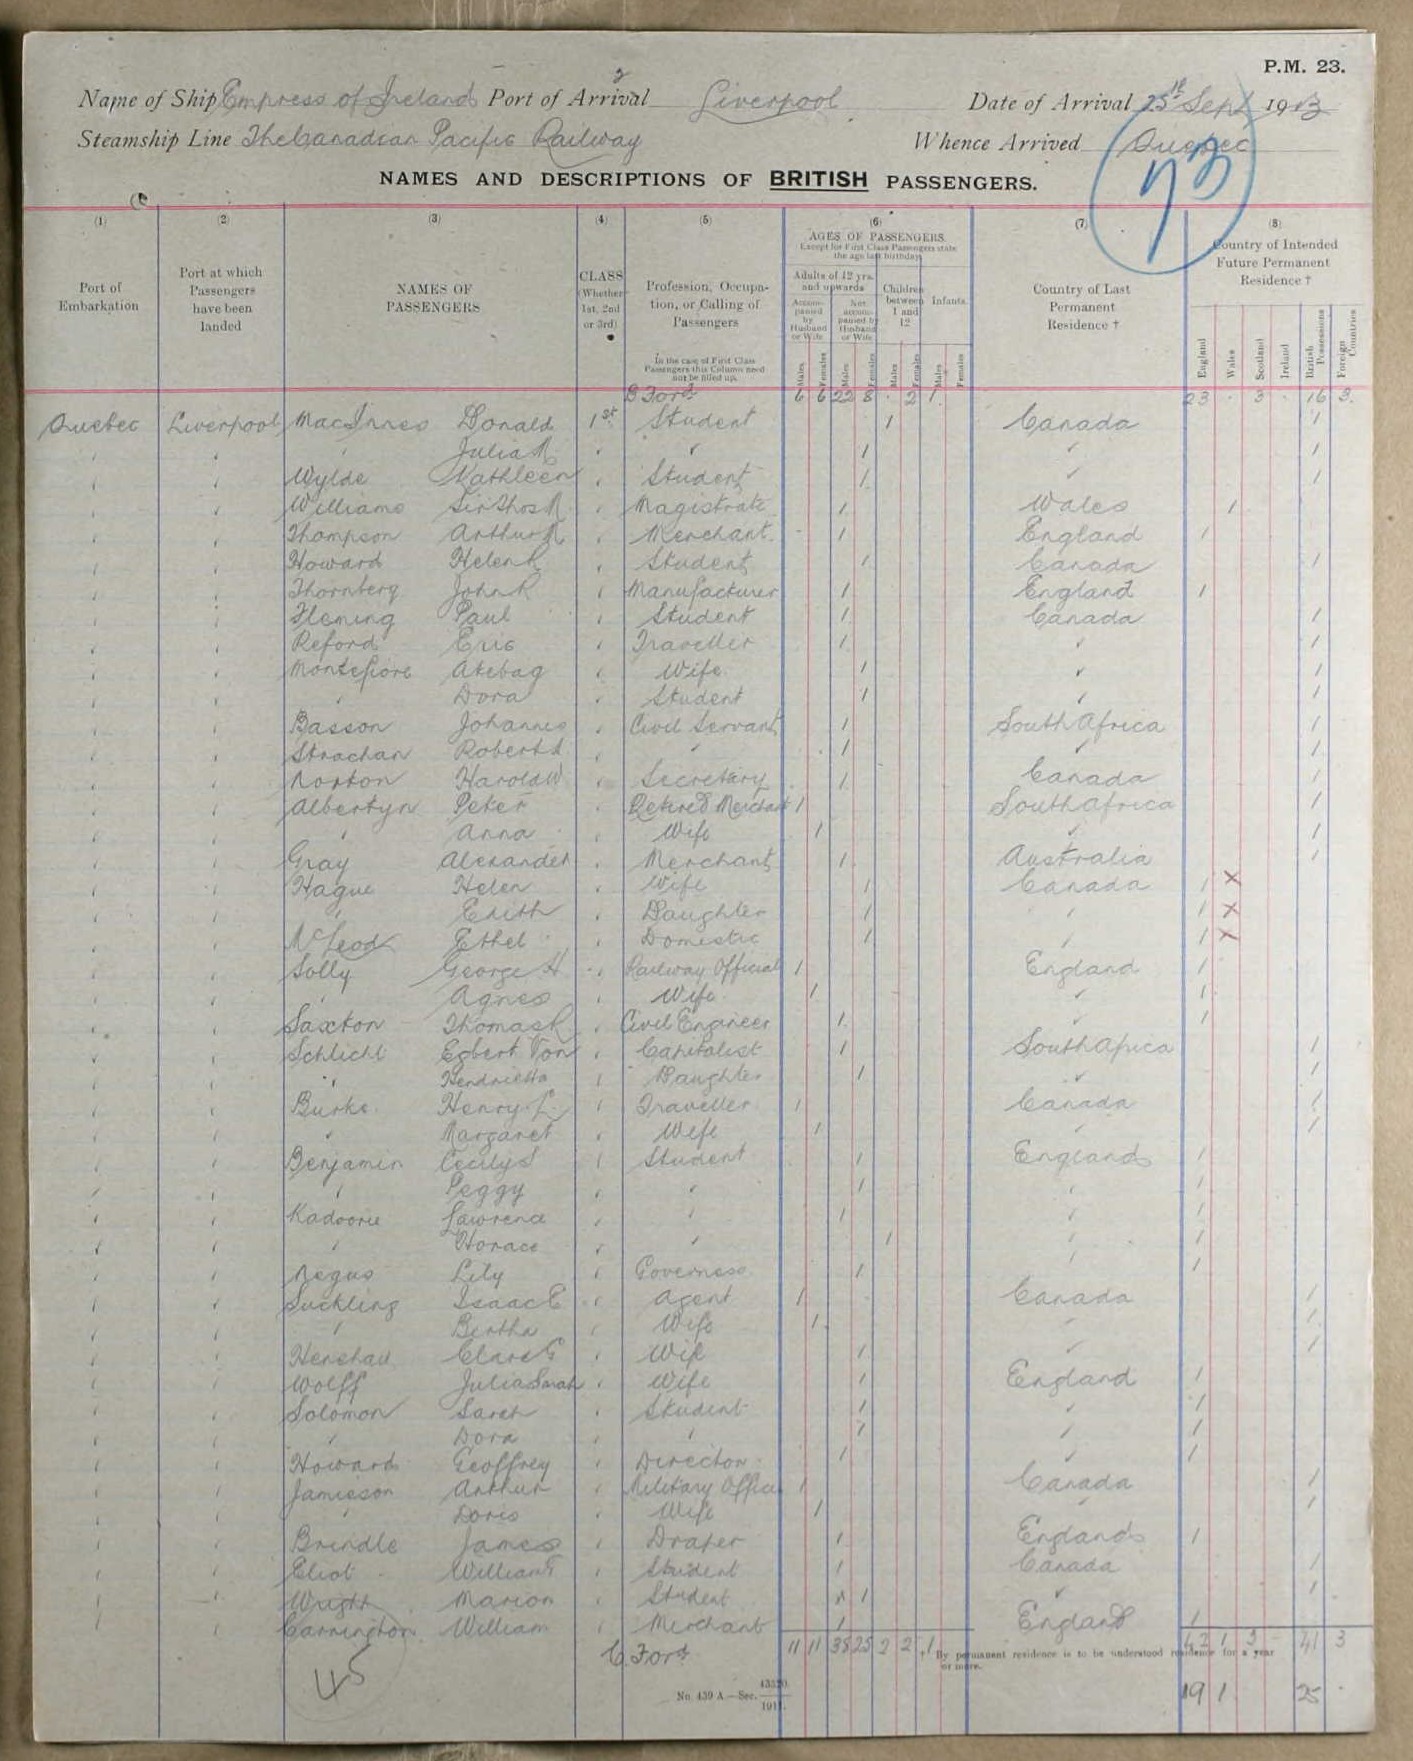 P.M. 23.
Name of Ship Empress of Ireland Port of Arrival Liverpool Date of Arrival 25th Sept 1913
2
Steamship Line The Canadian Pacific Railway Whence Arrived Quebec
73
NAMES AND DESCRIPTIONS OF BRITISH PASSENGERS.
(1) (2) (3) (4) (5) (6) (7) (8)
Port of Embarkation
Port at which Passengers have been landed
NAMES OF PASSENGERS
CLASS (Whether 1st, 2nd or 3rd)
Profession, Occupation, or Calling of Passengers
In the case of First Class Passengers this Column need not be filled up.
AGES OF PASSENGERS.
Except for First Class Passengers state the age last birthday
Adults of 12 yrs. and upwards
Accompanied by Husband or Wife
Not accompanied by Husband or Wife
Children between 1 and 12
Infants.
Males Females Males Females Males Females Males Females
Country of Last Permanent Residence †
Country of Intended Future Permanent Residence †
England Wales Scotland Ireland British Possessions Foreign Countries
B Ford 6 6 22 8 . 2 1 23 . 3 . 16 3
Quebec Liverpool MacInnes Donald 1st Student 1 Canada 1
" " " Julia R " " 1 " 1
" " Wylde Kathleen " Student 1 " 1
" " Williams Sir Thos R " Magistrate 1 Wales 1
" " Thompson Arthur R " Merchant 1 England 1
" " Howard Helen R " Student 1 Canada 1
" " Thornberg John R " Manufacturer 1 England 1
" " Fleming Paul " Student 1 Canada 1
" " Reford Eric " Traveller 1 " 1
" " Montefiore Atebag " Wife 1 " 1
" " " Dora " Student 1 " 1
" " Basson Johannes " Civil Servant 1 South Africa 1
" " Strachan Robert A " " 1 " 1
" " Norton Harold W " Secretary 1 Canada 1
" " Albertyn Peter " Retired Merchant 1 South Africa 1
" " " Anna " Wife 1 " 1
" " Gray Alexander " Merchant 1 Australia 1
" " Hague Helen " Wife 1 Canada 1 X
" " " Edith " Daughter 1 " 1 X
" " McLeod Ethel " Domestic 1 " 1 X
" " Solly George H " Railway Official 1 England 1
" " " Agnes " Wife 1 " 1
" " Saxton Thomas R " Civil Engineer 1 " 1
" " Schlicht Egbert Von " Capitalist 1 South Africa 1
" " " Hendrietta " Daughter 1 " 1
" " Burke Henry L " Traveller 1 Canada 1
" " " Margaret " Wife 1 " 1
" " Benjamin Cecily S " Student 1 England 1
" " " Peggy " " 1 " 1
" " Kadoorie Lawrence " " 1 " 1
" " " Horace " " 1 " 1
" " Negus Lily " Governess 1 " 1
" " Suckling Isaac E " Agent 1 Canada 1
" " " Bertha " Wife 1 " 1
" " Henshaw Clara G " Wife 1 " 1
" " Wolff Julia Sarah " Wife 1 England 1
" " Solomon Sarah " Student 1 " 1
" " " Dora " " 1 " 1
" " Howard Geoffrey " Director 1 " 1
" " Jamieson Arthur " Military Officer 1 Canada 1
" " " Doris " Wife 1 " 1
" " Brindle James " Draper 1 England 1
" " Eliot William F " Student 1 Canada 1
" " Wright Marion " Student 1 " 1
" " Carrington William " Merchant 1 England 1
C Ford 11 11 38 25 2 2 1 42 1 3 - 41 3
By permanent residence is to be understood residence for a year or more.
45
No. 439 A.—Sec.
19 1 25